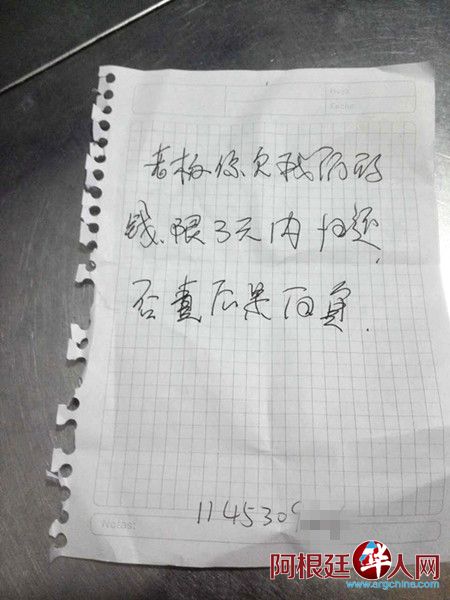 Fecha:
老板你欠我们的
钱.限3天内归还,
否责后果自负.
Notas:
1145309
阿根廷華人网
www.argchina.com